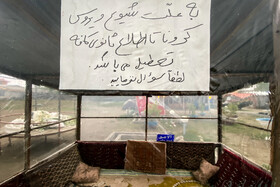 به علت شیوع ویروس
کرونا تا اطلاع ثانوی کافه
تعطیل می باشد.
لطفاً سؤال نفرمایید